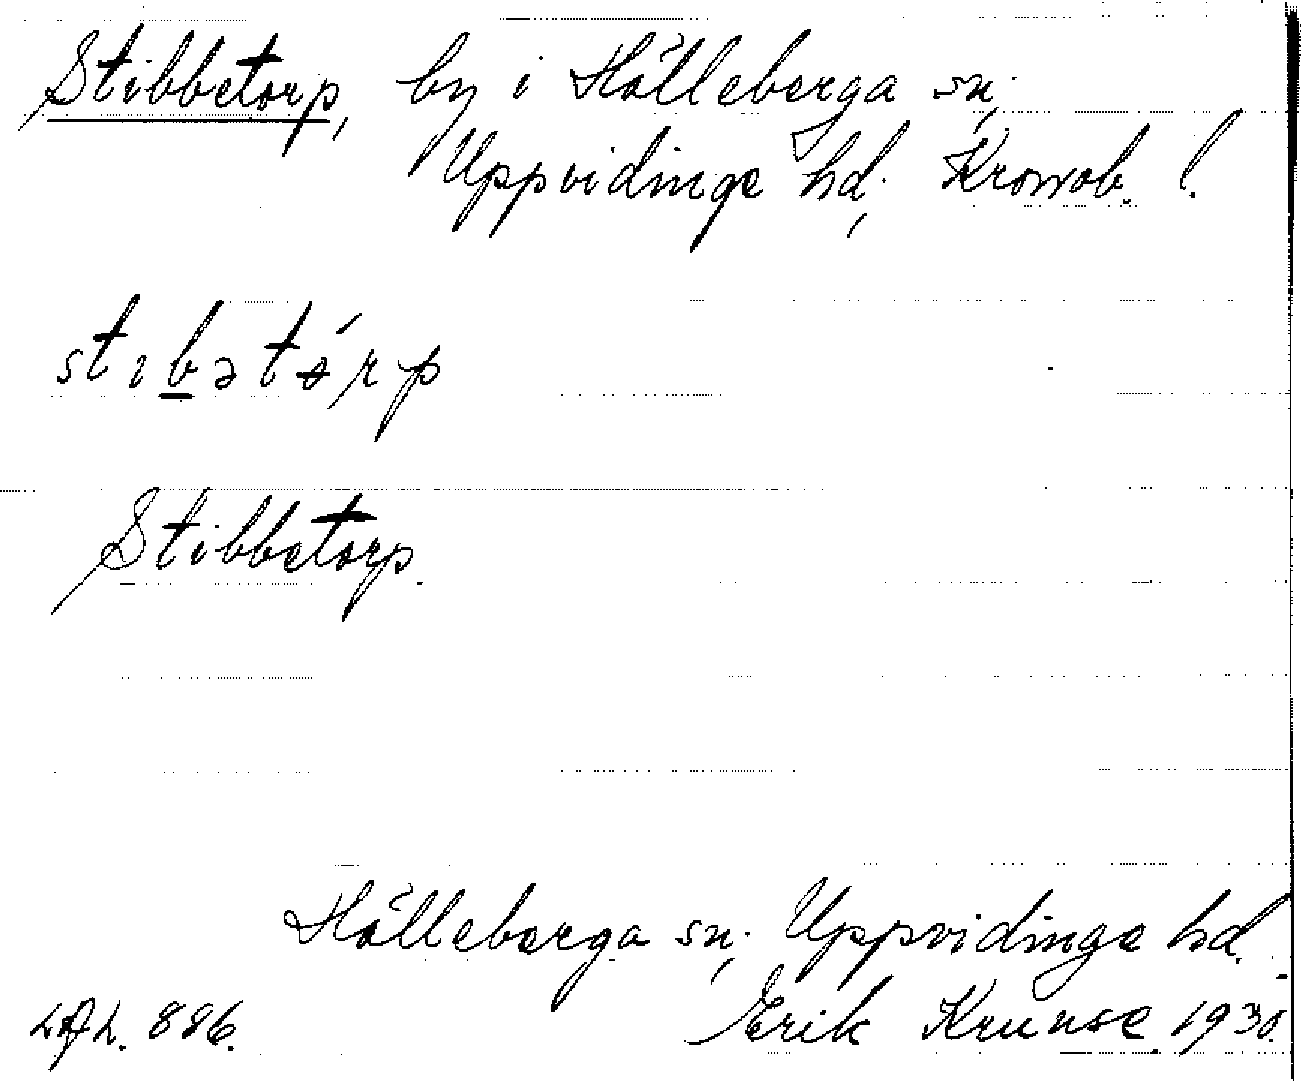 Stibbetorp, by i Hälleberga sn;
Uppvidinge hd; Kronob. l.
stibətórp
Stibbetorp.
Hälleberga sn; Uppvidinge hd.
LAL. 886. Erik Krunse. 1930.